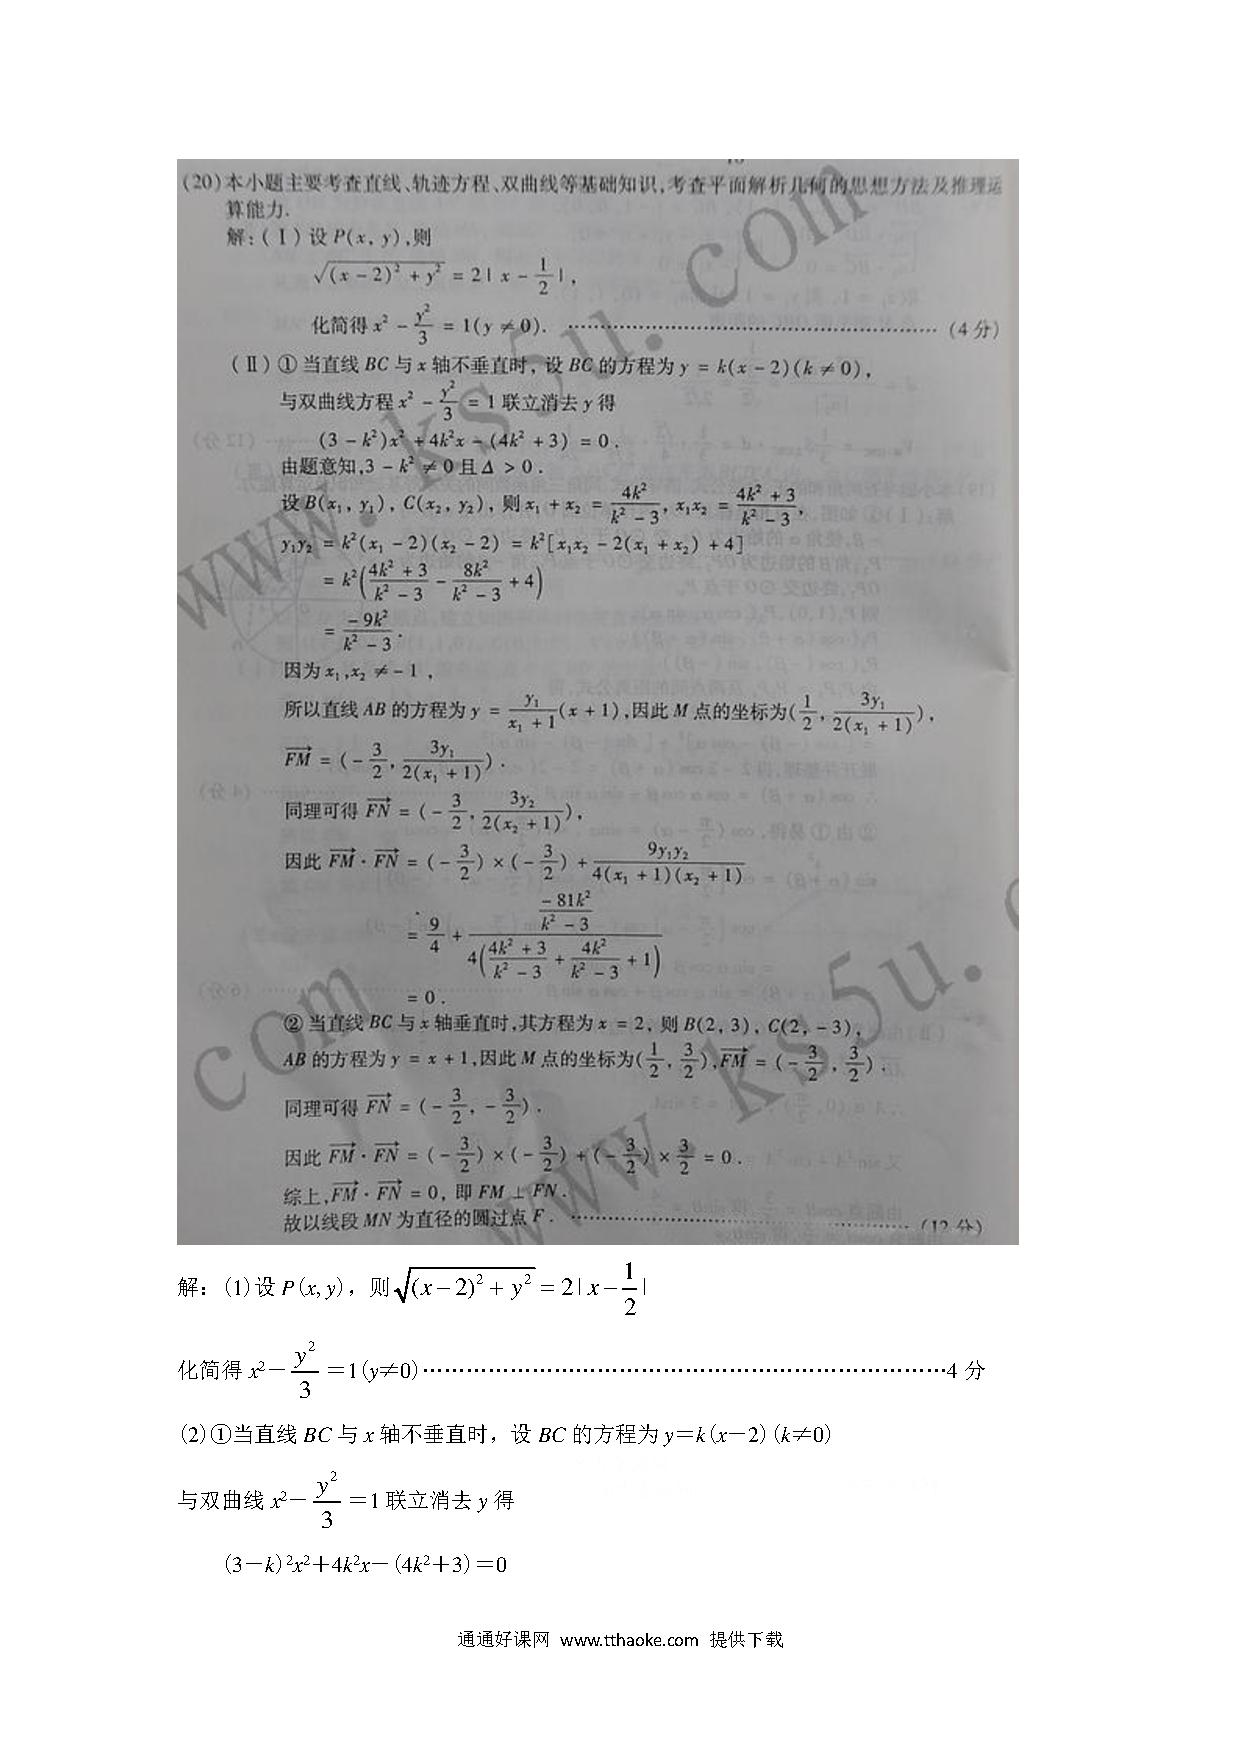 (20)本小题主要考查直线、轨迹方程、双曲线等基础知识,考查平面解析几何的思想方法及推理运
算能力.
解:(Ⅰ)设 P(x, y),则
√((x − 2)² + y²) = 2| x − 1/2 |,
化简得 x² − y²/3 = 1(y ≠ 0). ………………………………………… (4分)
(Ⅱ)①当直线 BC 与 x 轴不垂直时, 设 BC 的方程为 y = k(x − 2)(k ≠ 0),
与双曲线方程 x² − y²/3 = 1 联立消去 y 得
(3 − k²)x² + 4k²x − (4k² + 3) = 0.
由题意知,3 − k² ≠ 0 且 Δ > 0.
设 B(x₁, y₁), C(x₂, y₂), 则 x₁ + x₂ = 4k²/(k² − 3), x₁x₂ = (4k² + 3)/(k² − 3),
y₁y₂ = k²(x₁ − 2)(x₂ − 2) = k²[x₁x₂ − 2(x₁ + x₂) + 4]
= k²((4k² + 3)/(k² − 3) − 8k²/(k² − 3) + 4)
= −9k²/(k² − 3).
因为 x₁,x₂ ≠ −1,
所以直线 AB 的方程为 y = y₁/(x₁ + 1)(x + 1),因此 M 点的坐标为(1/2, 3y₁/(2(x₁ + 1))),
FM→ = (−3/2, 3y₁/(2(x₁ + 1))).
同理可得 FN→ = (−3/2, 3y₂/(2(x₂ + 1))),
因此 FM→ · FN→ = (−3/2) × (−3/2) + 9y₁y₂/(4(x₁ + 1)(x₂ + 1))
= 9/4 + (−81k²/(k² − 3))/(4((4k² + 3)/(k² − 3) + 4k²/(k² − 3) + 1))
= 0.
②当直线 BC 与 x 轴垂直时,其方程为 x = 2, 则 B(2, 3), C(2, −3),
AB 的方程为 y = x + 1,因此 M 点的坐标为(1/2, 3/2),FM→ = (−3/2, 3/2).
同理可得 FN→ = (−3/2, −3/2).
因此 FM→ · FN→ = (−3/2) × (−3/2) + (−3/2) × 3/2 = 0.
综上,FM→ · FN→ = 0, 即 FM ⊥ FN.
故以线段 MN 为直径的圆过点 F. ………………………………… (12分)
www.ks5u.com
www.ks5u.c
com
解:(1)设 P(x, y),则√((x−2)² + y²) = 2| x − 1/2 |
化简得 x²− y²/3 =1(y≠0)………………………………………………………………4 分
(2)①当直线 BC 与 x 轴不垂直时,设 BC 的方程为 y=k(x−2)(k≠0)
与双曲线 x²− y²/3 =1 联立消去 y 得
(3−k)²x²+4k²x−(4k²+3)=0
通通好课网 www.tthaoke.com 提供下载